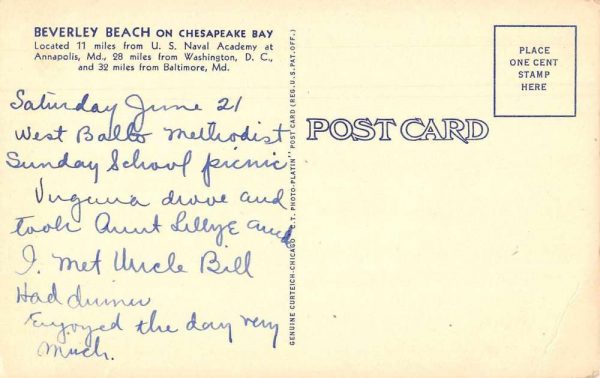 BEVERLEY BEACH ON CHESAPEAKE BAY
Located 11 miles from U. S. Naval Academy at
Annapolis, Md., 28 miles from Washington, D. C.,
and 32 miles from Baltimore, Md.
Saturday June 21
West Balto Methodist
Sunday School picnic
Virginia drove and
took Aunt Lillye and
I. Met Uncle Bill
Had dinner
Enjoyed the day very
Much.
GENUINE CURTEICH-CHICAGO "C.T. PHOTO-PLATIN" POST CARD (REG. U.S. PAT. OFF.)
POST CARD
PLACE
ONE CENT
STAMP
HERE